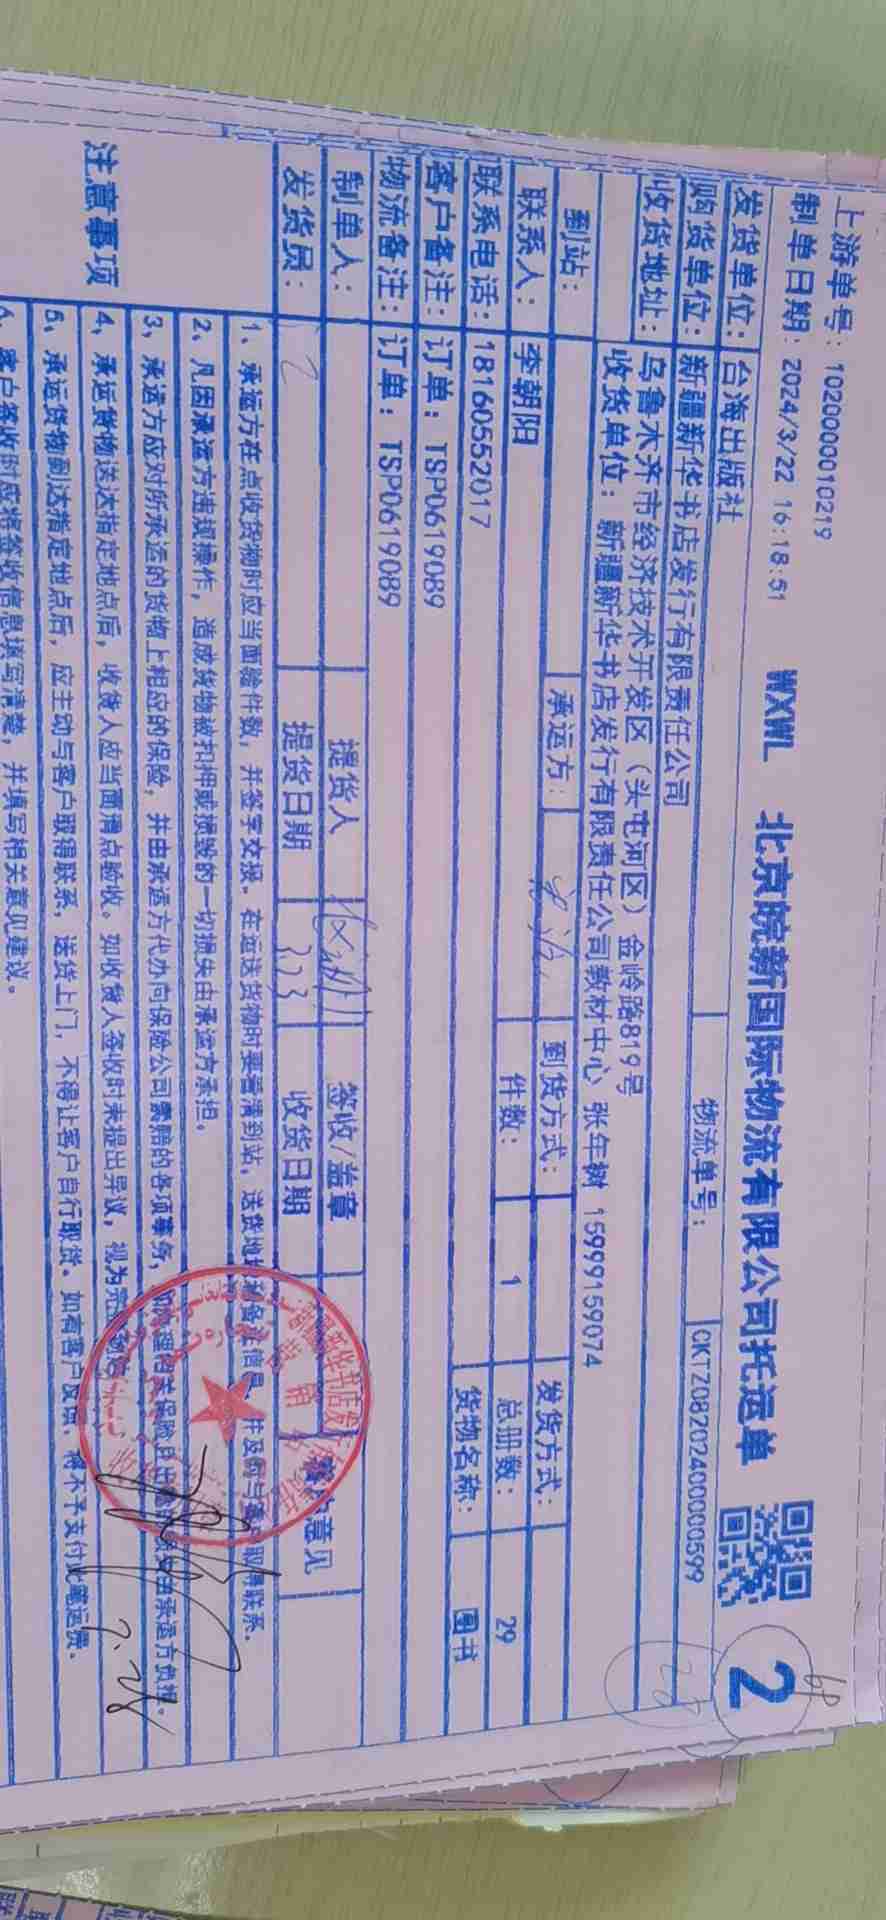 上游单号：1020000010219
制单日期：2024/3/22 16:18:51 WXWL 北京皖新国际物流有限公司托运单 2
发货单位：台海出版社 物流单号：CKTZ08202400000599
购货单位：新疆新华书店发行有限责任公司
收货地址：乌鲁木齐市经济技术开发区（头屯河区）金岭路819号
收货单位：新疆新华书店发行有限责任公司教材中心 张年树 15999159074
到站： 承运方： 到货方式： 发货方式：
联系人：李朝阳 件数：1 总册数：29
联系电话：18160552017 货物名称：图书
客户备注：订单：TSP0619089
物流备注：订单：TSP0619089
制单人： 提货人 签收/盖章
发货员： 提货日期 3.23 收货日期 意见
注意事项
1、承运方在点收货物时应当面验件数，并签字交接。在运送货物时要看清到站，送货地 备 信息，并及 与 取得联系。
2、凡因承运方违规操作，造成货物被扣押或损毁的一切损失由承运方承担。
3、承运方应对所承运的货物上相应的保险，并由承运方代办向保险公司索赔的各项事务， 由承运方负担。
4、承运货物送达指定地点后，收货人应当面清点验收。如收货人签收时未提出异议，视为完
5、承运货物到达指定地点后，应主动与客户取得联系，送货上门，不得让客户自行取货。如有客户反 ，将不予支付此笔运费。
6、客户签收时应将签收信息填写清楚，并填写相关意见建议。